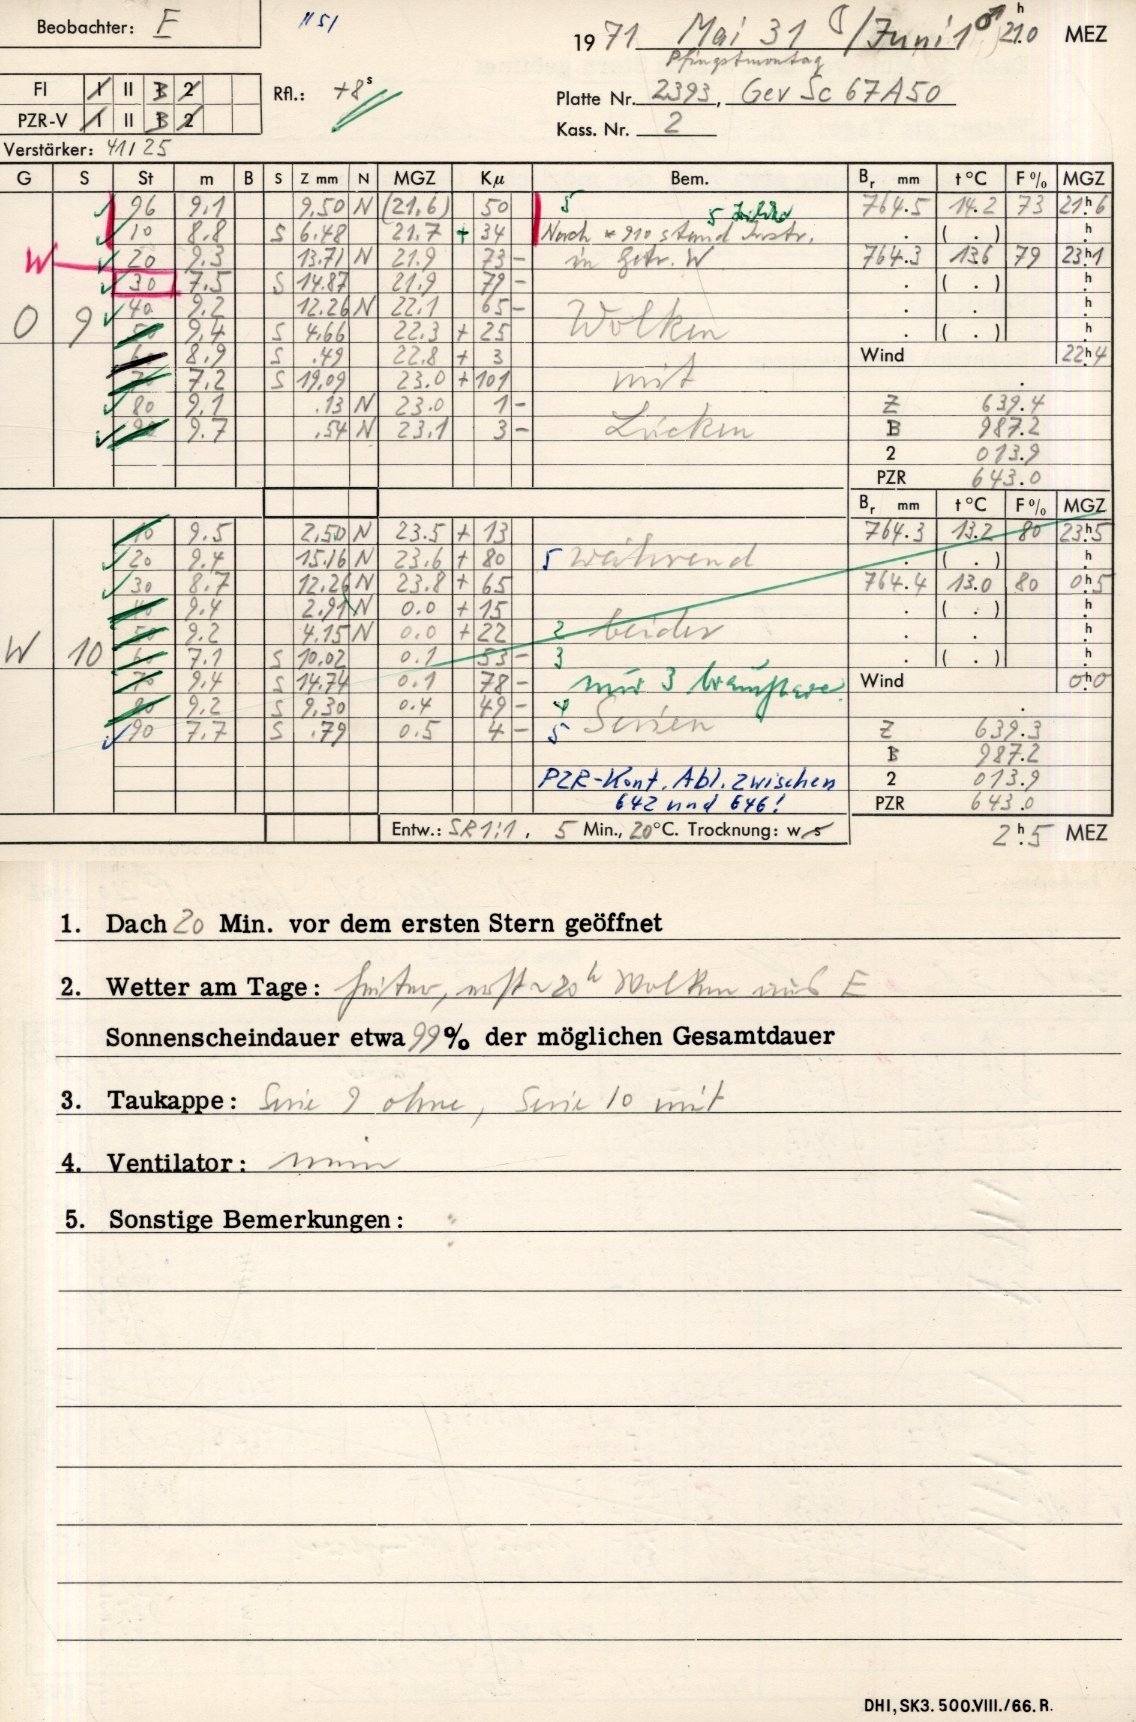 Beobachter: E
N 51
19 71 Mai 31 ☾/Juni 1 ♂ 21.0 h MEZ
Pfingstmontag
FI I II 3 2
PZR-V I II 3 2
Rfl.: +8 s
Platte Nr. 2393, Gev Sc 67A50
Kass. Nr. 2
Verstärker: 41/25
G S St m B S Z mm N MGZ Kμ Bem. Br mm t°C F% MGZ
96 9.1 9.50 N (21.6) 50 5 764.5 14.2 73 21h6
10 8.8 S 6.48 21.7 + 34 Nach * 910 stand Instr. . ( . ) h
W 20 9.3 13.71 N 21.9 73 - in W 764.3 13.6 79 23h1
30 7.5 S 14.87 21.9 79 - . ( . ) h
O 9 40 9.2 12.26 N 22.1 65 - Wolken . . h
50 9.4 S 4.66 22.3 + 25 . ( . ) h
60 8.9 S .49 22.8 + 3 Wind 22h4
70 7.2 S 19.09 23.0 + 101 mit .
80 9.1 .13 N 23.0 1 - Z 639.4
90 9.7 .54 N 23.1 3 - Lücken B 987.2
2 013.9
PZR 643.0
Br mm t°C F% MGZ
10 9.5 2.50 N 23.5 + 13 764.3 13.2 80 23h5
20 9.4 15.16 N 23.6 + 80 5 während . ( . ) h
30 8.7 12.26 N 23.8 + 65 764.4 13.0 80 0h5
40 9.4 2.91 N 0.0 + 15 . ( . ) h
50 9.2 4.15 N 0.0 + 22 2 beider . . h
W 10 60 7.1 S 10.02 0.1 53 - 3 . ( . ) h
70 9.4 S 14.74 0.1 78 - nur 3 brauchbare Wind 0h0
80 9.2 S 9.30 0.4 49 - 4 Serien .
90 7.7 S .79 0.5 4 - 5 Z 639.3
B 987.2
PZR-Kont. Abl. zwischen 2 013.9
642 und 646! PZR 643.0
Entw.: SR 1:1, 5 Min., 20°C. Trocknung: w s 2h5 MEZ
1. Dach 20 Min. vor dem ersten Stern geöffnet
2. Wetter am Tage: heiter, erst ~20h Wolken aus E
Sonnenscheindauer etwa 99% der möglichen Gesamtdauer
3. Taukappe: Serie 9 ohne, Serie 10 mit
4. Ventilator: nein
5. Sonstige Bemerkungen:
DHI, SK3. 500.VIII./66. R.